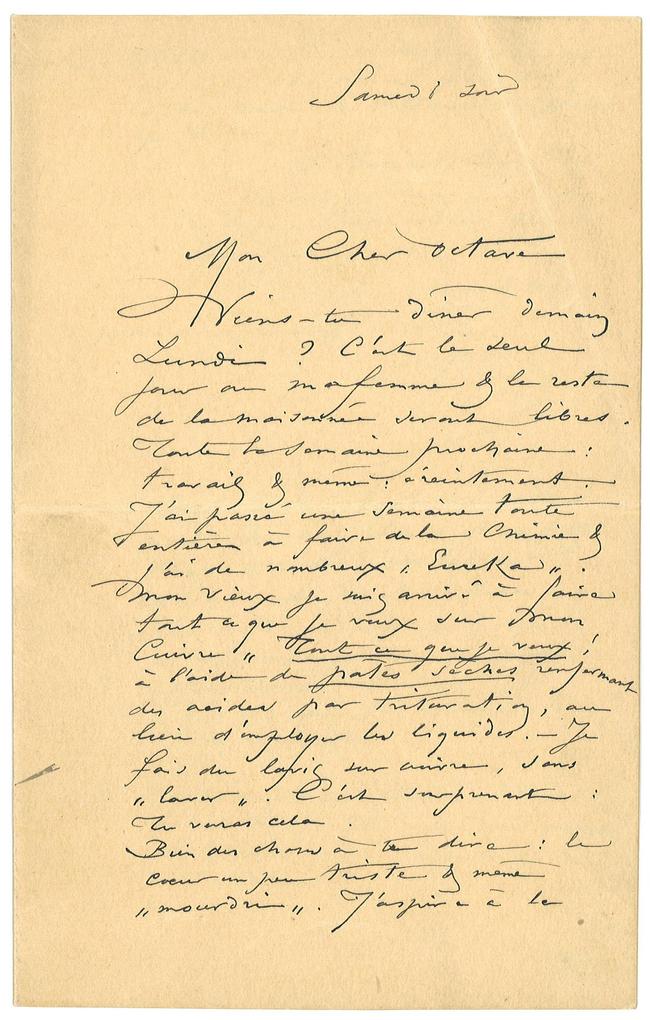 Samedi soir
Mon Cher Octave
Viens-tu diner demain
Lundi ? C'est le seul
jour ou ma femme & le reste
de la maisonnée seront libres.
Toute la semaine prochaine :
travail & même : éreintement.
J'ai passé une semaine toute
entière à faire de la Chimie &
j'ai de nombreux „ Eureka „ !
Mon vieux je suis arrivé à faire
tout ce que je veux sur mon
Cuivre „ Tout ce que je veux !
à l'aide de pates sèches renfermant
des acides par trituration, au
lieu d'employer les liquides. — Je
fais du lavis sur cuivre, sans
„ laver „. C'est surprenant :
Tu verras cela.
Bien des choses à te dire : le
coeur un peu triste & même
„ „. J'aspire à le